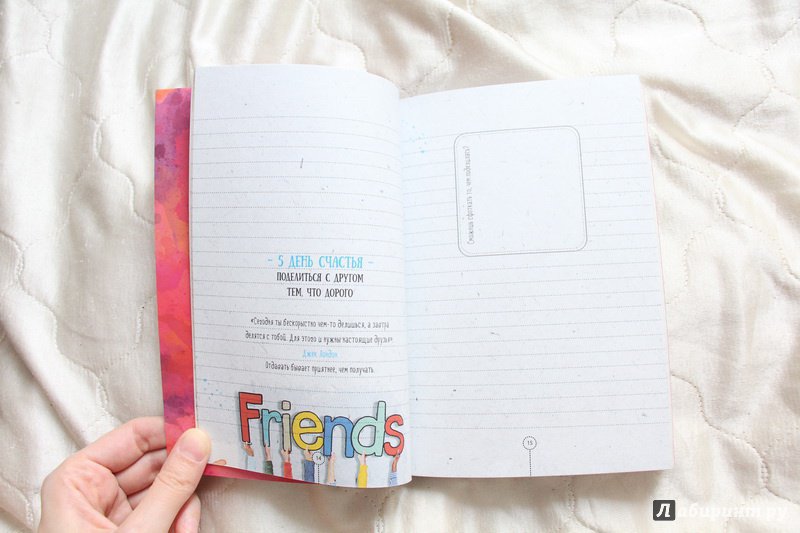 - 5 ДЕНЬ СЧАСТЬЯ -
ПОДЕЛИТЬСЯ С ДРУГОМ
ТЕМ, ЧТО ДОРОГО
«Сегодня ты бескорыстно чем-то делишься, а завтра
делятся с тобой. Для этого и нужны настоящие друзья».
Джек Лондон
Отдавать бывает приятнее, чем получать.
Friends
14
Сможешь сфоткать то, чем поделишься?
15
Лабиринт.ру